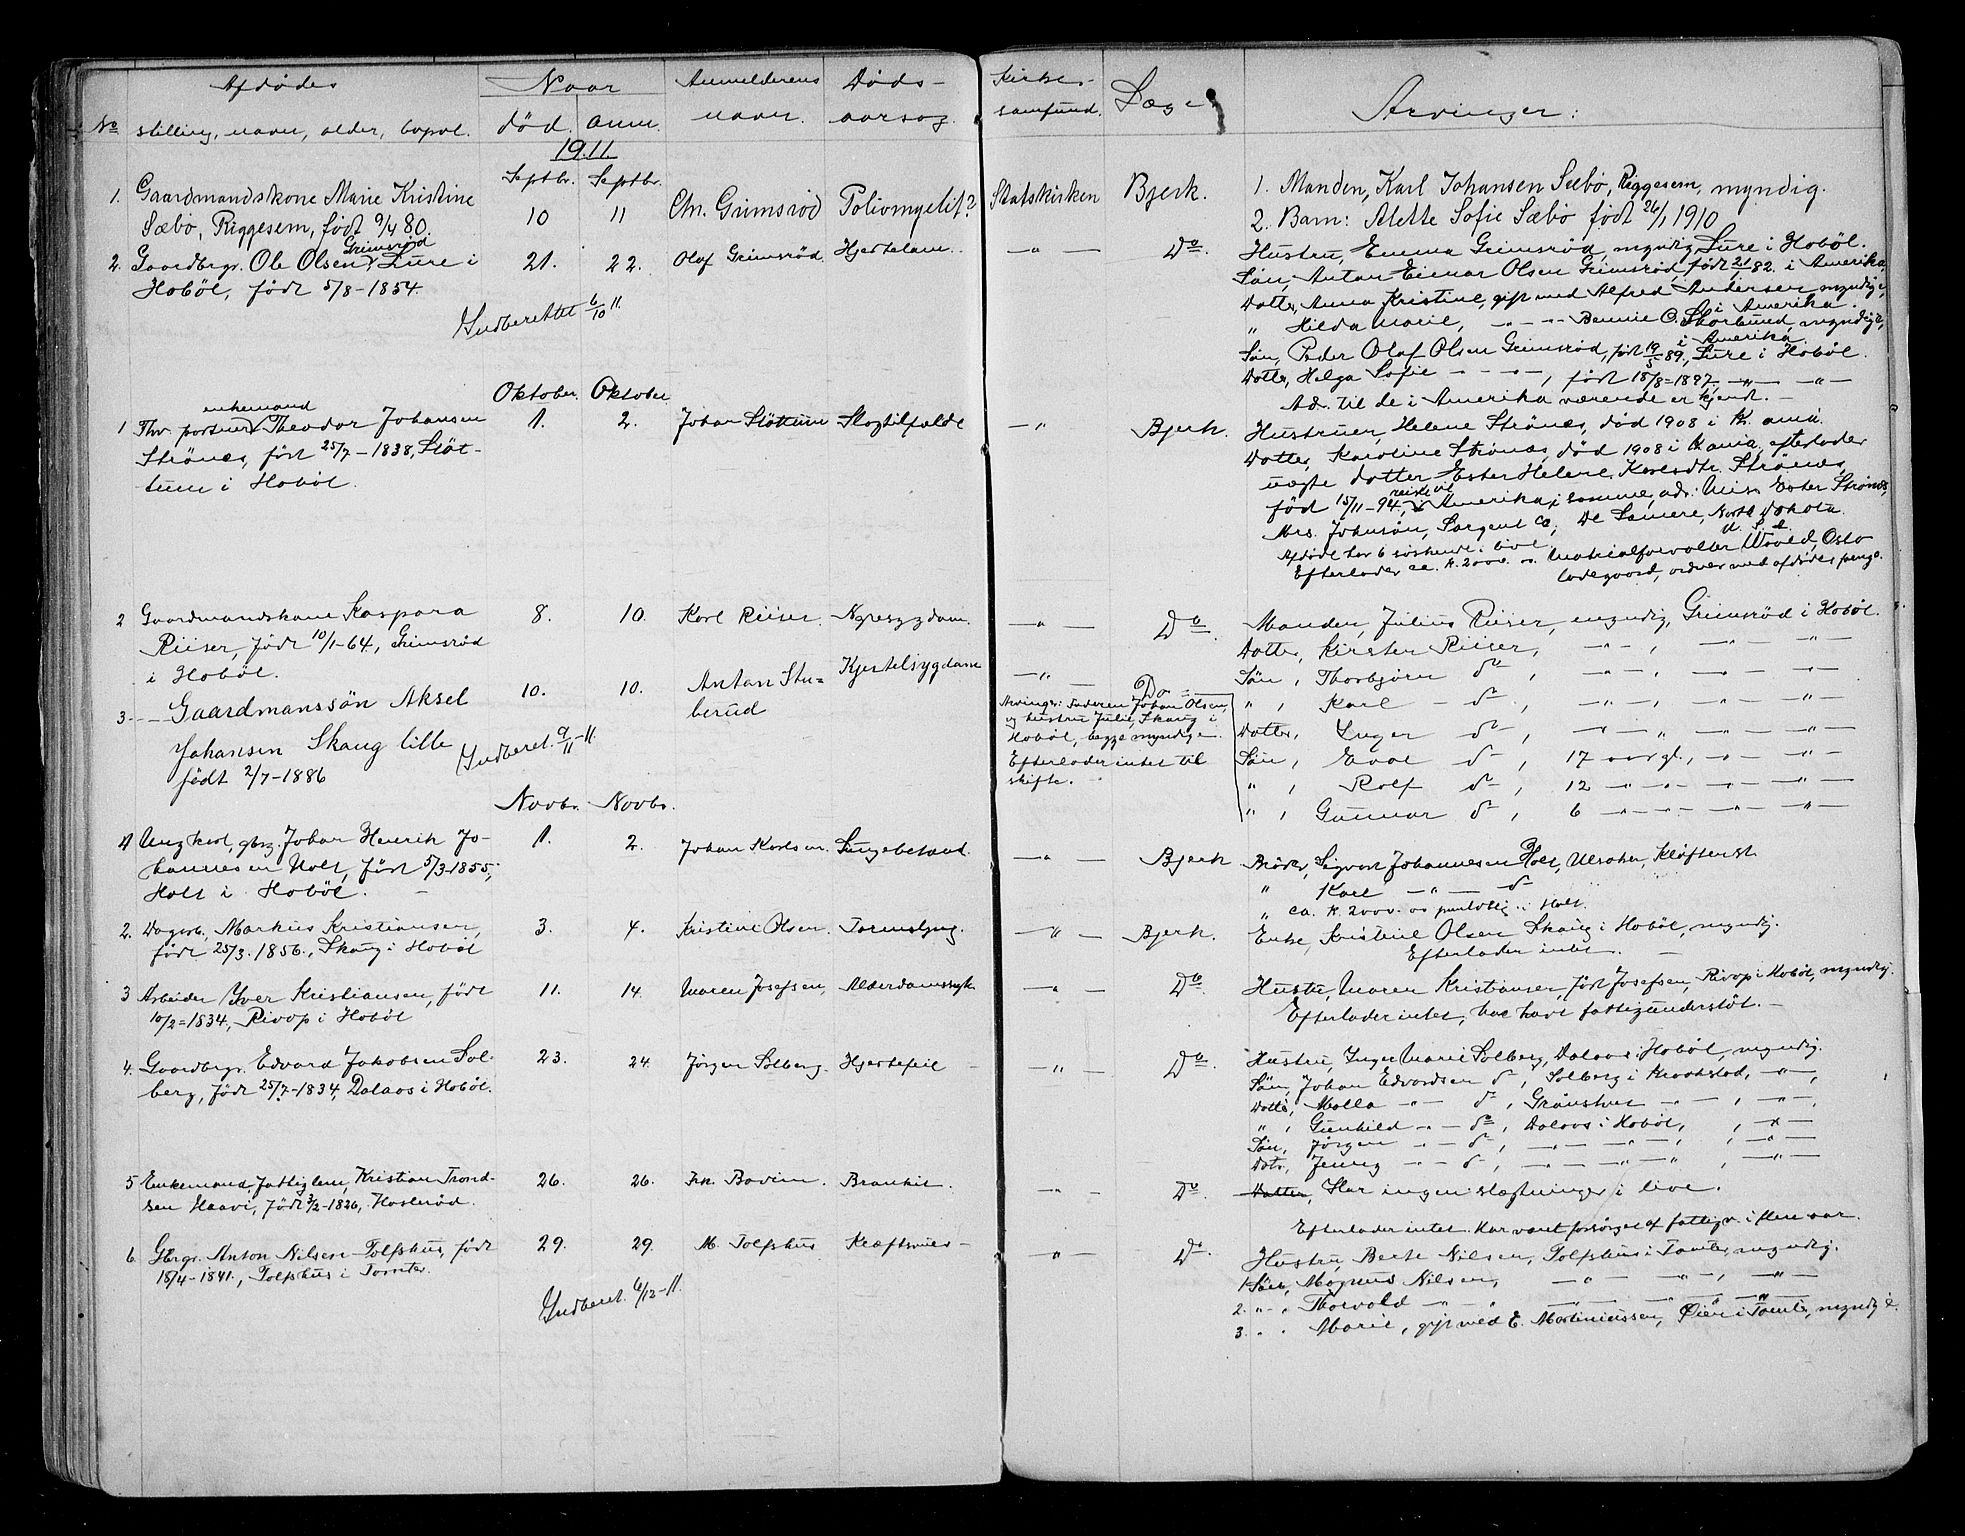 Afdødes
Naar
Anmelderens
Døds-
Kirke-
Læge
Arvinger:
No
stilling, navn, alder, bopæl.
død.
anm.
navn.
aarsag.
samfund.
1911.
Septbr. Septbr.
1. Gaardmandskone Marie Kristine
Sæbø, Riggesem, født 9/4 80.
10
11
Chr. Grimsrød
Poliomyelit?
Statskirken
Bjerk.
1. Manden, Karl Johansen Sæbø, Riggesem, myndig.
2. Barn: Alette Sofie Sæbø født 26/1 1910
Grimsrød
2. Gaardbrgr. Ole Olsen Lure i
Hobøl, født 5/8-1854.
21.
22.
Olaf Grimsrød.
Hjertelam.
—"—
Do.
Hustru, Emma Grimsrød, myndig, Lure i Hobøl.
Søn, Anton Einar Olsen Grimsrød, født 21/1 82. i Amerika,
Datter, Anna Kristine, gift med Alfred Andersen myndige,
i Amerika.
" Hilda Marie, —"— Bennie O. Skorlund, myndige,
i Amerika
Søn, Peder Olaf Olsen Grimsrød, født 19/5 89, Lure i Hobøl.
Datter, Helga Sofie — " —, født 15/8-1897, —"— —"—
Ad. til de i Amerika værende er kjendt. —
Indberettet 6/10 11
Oktober. Oktober.
enkemand
1 Fhv. portner Theodor Johansen
Strønes, født 25/7-1838, Sløt-
tum i Hobøl.
1.
2.
Johan Sløttum
Slagtilfælde
—"—
Bjerk.
Hustruen, Helene Strønes, død 1908 i Kr.ania.
Datter, Karoline Strønes, død 1908 i Kr.ania, efterlader
uægte datter Ester Helene Karlsdtr. Strønes,
født 15/11-94, reist til Amerika, samme, adr. Miss Ester Strønes,
Mrs. Johnson, Sargent Co., De Lamere, North Dakota.
U. S. A.
Afdøde har 6 søskende i live.
Efterlader ca. kr. 2000. — Materialforvalter Wold, Oslo
ladegaard, ordner med afdødes penge.
2 Gaardmandskone Kaspara
Riiser, født 10/1-64, Grimsrød
i Hobøl.
8.
10.
Karl Riiser.
Nyresygdom.
—"—
Do
Manden, Julius Riiser, myndig, Grimsrød i Hobøl.
Datter, Kirsten Riiser, —"—, —"— —"—
Søn, Thorbjørn do, —"—, —"— —"—
" , Karl — do, —"—, —"— —"—
Datter, Inger do, —"— —"— —"—
Søn, Eval do, 17 aar gl., —"— —"—
" , Rolf do, 12 —"— —"— —"—
" , Gunnar do, 6 —"— —"— —"—
3-- Gaardmanssøn Aksel
Johansen Skaug lille
født 2/7-1886
10.
10.
Anton Stu-
berud
Kjertelsygdom
—"—
Do
Arvinger: Faderen Johan Olsen,
og hustru Julie, Skaug i
Hobøl, begge myndige.
Efterlader intet til
skifte.
Indberet. 9/11-11.
Novbr. Novbr.
1 Ungkarl, gbrg. Johan Henrik Jo-
hannesen Holt, født 5/3-1855,
Holt i Hobøl.
1.
2.
Johan Karlsen.
Lungebetænd.
—"—
Bjerk
Broder, Sigvart Johannesen Holt, Ulraker, Kløften st.
" Karl —"— do
" ca. kr. 2000. — i Holt.
2. Dagarb. Markus Kristiansen,
født 25/3.1856., Skaug i Hobøl
3.
4.
Kristine Olsen.
Tarmslyng.
—"—
Bjerk.
Enke, Kristine Olsen Skaug i Hobøl, myndig.
Efterlader intet.
3 Arbeider Iver Kristiansen, født
10/2-1834, Rivop i Hobøl
11.
14.
Maren Josefsen,
Alderdomssyk.
—"—
Do.
Hustru, Maren Kristiansen, født Josefsen, Rivop i Hobøl, myndig.
Efterlader intet, har havt fattigunderstøt. —
4. Gaardbrgr. Edvard Jakobsen Sol-
berg, født 25/7-1834, Dalaos i Hobøl.
23.
24.
Jørgen Solberg.
Hjertefeil
—"—
Do.
Hustru, Inger Marie Solberg, Dalaos i Hobøl, myndig.
Søn, Johan Edvardsen do, Solberg i Kraakstad, —"—,
Datter, Malla —"— do, —"—, —"—,
" , Gunhild —"— do, Dalaos i Hobøl, , —"—
Søn, Jørgen —"— do, —"— —"—, , —"—
Datr, Jenny —"— do, —"— —"— , —"—
5 Enkemand, fattiglem, Kristian Trond-
sen Haavi, født 3/2-1826, Haslerød.
26.
26.
Bronkit.
—"—
Do.
Datter, Har ingen slægtninger i live.
Efterlader intet. Har været forsørget af fattigv. i flere aar.
6. Gbrgr. Anton Nilsen Tolfshus, født
18/4-1841., Tolfshus i Tomter.
29.
29.
M. Tolfshus
—"—
Do.
Hustru, Berte Nilsen, Tolfshus i Tomter, myndig.
1. Søn, Magnus Nilsen, —"— —"—, —"—
2. —"— Thorvald —"— —"— —"— —"—
3. " " Marie, gift med E. Martiniussen, Øien i Tomter, myndige.
Indberet. 6/12-11.